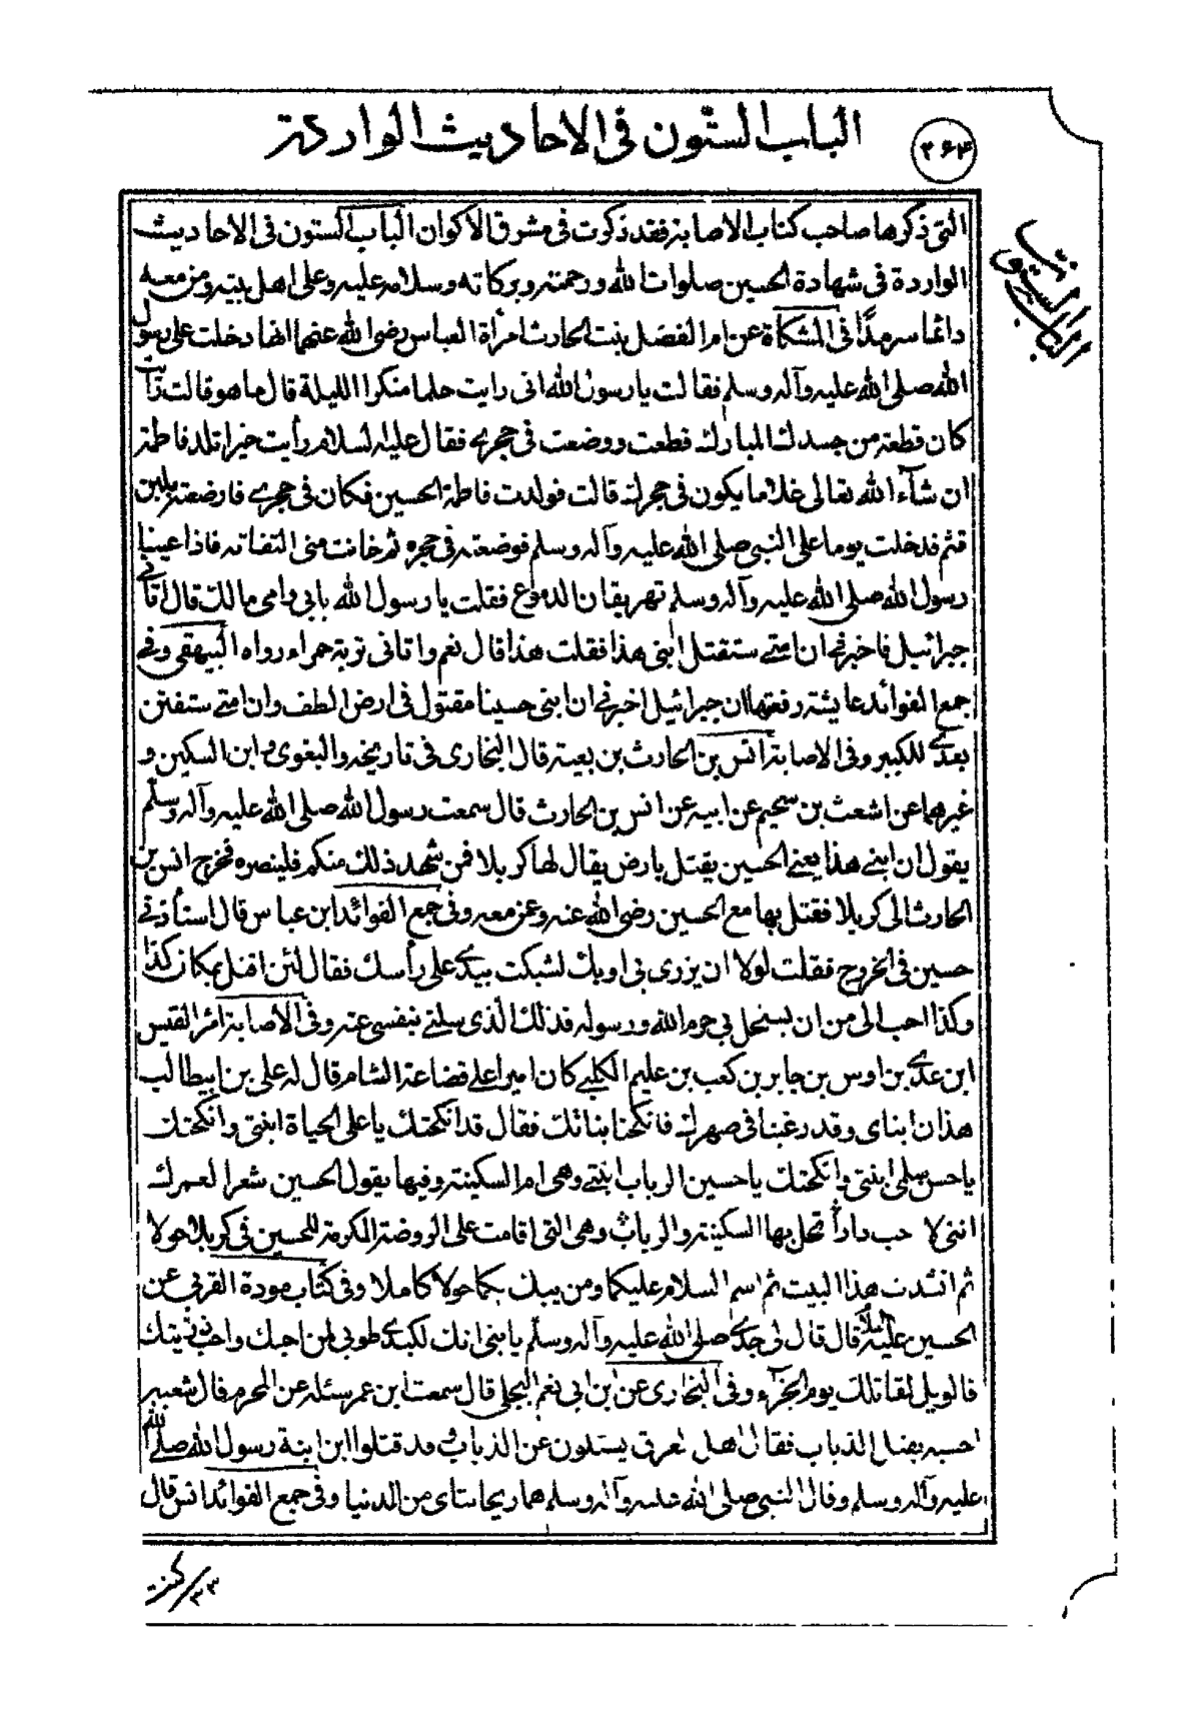 الباب الستون فى الاحاديث الواردة
٢٦٤
الباب الستون
التى ذكرها صاحب كتاب الاصابة فقد ذكرت فى مشرق الاكوان الباب الستون فى الاحاديث
الواردة فى شهادة الحسين صلوات الله ورحمته وبركاته وسلامه عليه وعلى اهل بيته ومن معه
دائما سرمدًا فى المشكاة عن ام الفضل بنت الحارث امرأة العباس رضى الله عنهما انها دخلت على رسول
الله صلى الله عليه وآله وسلم فقالت يا رسول الله انى رايت حلما منكرا الليلة قال ما هو قالت رأيت
كان قطعة من جسدك المبارك قطعت ووضعت فى حجرى فقال عليه السلام رأيت خيرا تلد فاطمة
ان شآء الله تعالى غلاما يكون فى حجرك قالت فولدت فاطمة الحسين فكان فى حجرى فارضعته بلبن
قثم فدخلت يوما على النبى صلى الله عليه وآله وسلم فوضعته فى حجره ثم حانت منى التفاته فاذا عينا
رسول الله صلى الله عليه وآله وسلم تهريقان الدموع فقلت يا رسول الله بابى وامى مالك قال اتانى
جبرائيل فاخبرنى ان امتى ستقتل ابنى هذا فقلت هذا قال نعم واتانى تربة حمراء رواه البيهقى وفى
جمع الفوائد عايشة رفعتها ان جبرائيل اخبرنى ان ابنى حسينا مقتول فى ارض الطف وان امتى ستفتن
بعدى للكبير وفى الاصابة انس بن الحارث بن بعية قال البخارى فى تاريخه والبغوى وابن السكين و
غيرهما عن اشعث بن سحيم عن ابيه عن انس بن الحارث قال سمعت رسول الله صلى الله عليه وآله وسلم
يقول ان ابنى هذا يعنى الحسين يقتل بارض يقال لها كربلا فمن شهد ذلك منكم فلينصره فخرج انس بن
الحارث الى كربلا فقتل بها مع الحسين رضى الله عنه وعن معه وفى جمع الفوائد ابن عباس قال استأذنى
حسين فى الخروج فقلت لولا ان يزرى بى او بك لشبكت بيدى على رأسك فقال لئن اقتل بمكان كذا
وكذا احب الى من ان يستحل بى حرم الله ورسوله فذلك الذى سلنى بنفسى عنه وفى الاصابة امرؤ القيس
ابن عدى بن اوس بن جابر بن كعب بن عليم الكلبى كان اميرا على قضاعة الشام قال له على بن ابيطالب
هذان ابناى وقد رغبنا فى صهرك فانكحنا بناتك فقال قد انكحتك يا على الحياة ابنتى وانكحتك
يا حسن سلمى ابنتى وانكحتك يا حسين الرباب ابنتى وهى ام السكينة وفيها يقول الحسين شعر العمرك
اننى لا حب دارًا تحل بها السكينة والرباب وهى التى اقامت على الروضة المكرمة للحسين فى كربلا حولا
ثم انشدت هذا البيت ثم اسم السلام عليكما ومن يبك بكما حولا كاملا وفى كتاب مودة القربى عن
الحسين عليه السلام قال قال لى جدى صلى الله عليه وآله وسلم يا بنى انك لكبدى طوبى لمن احبك واحب ذريتك
فالويل لقاتلك يوم الجزآء وفى البخارى عن ابن ابى نعم البجلى قال سمعت ابن عمر سئله عن المحرم قال شعبه
احسبه يقتل الذباب فقال اهل العرق يسئلون عن الذباب وقد قتلوا ابن ابنة رسول الله صلى الله
عليه وآله وسلم وقال النبى صلى الله عليه وآله وسلم هما ريحانتاى من الدنيا وفى جمع الفوائد انس قال
٣٣